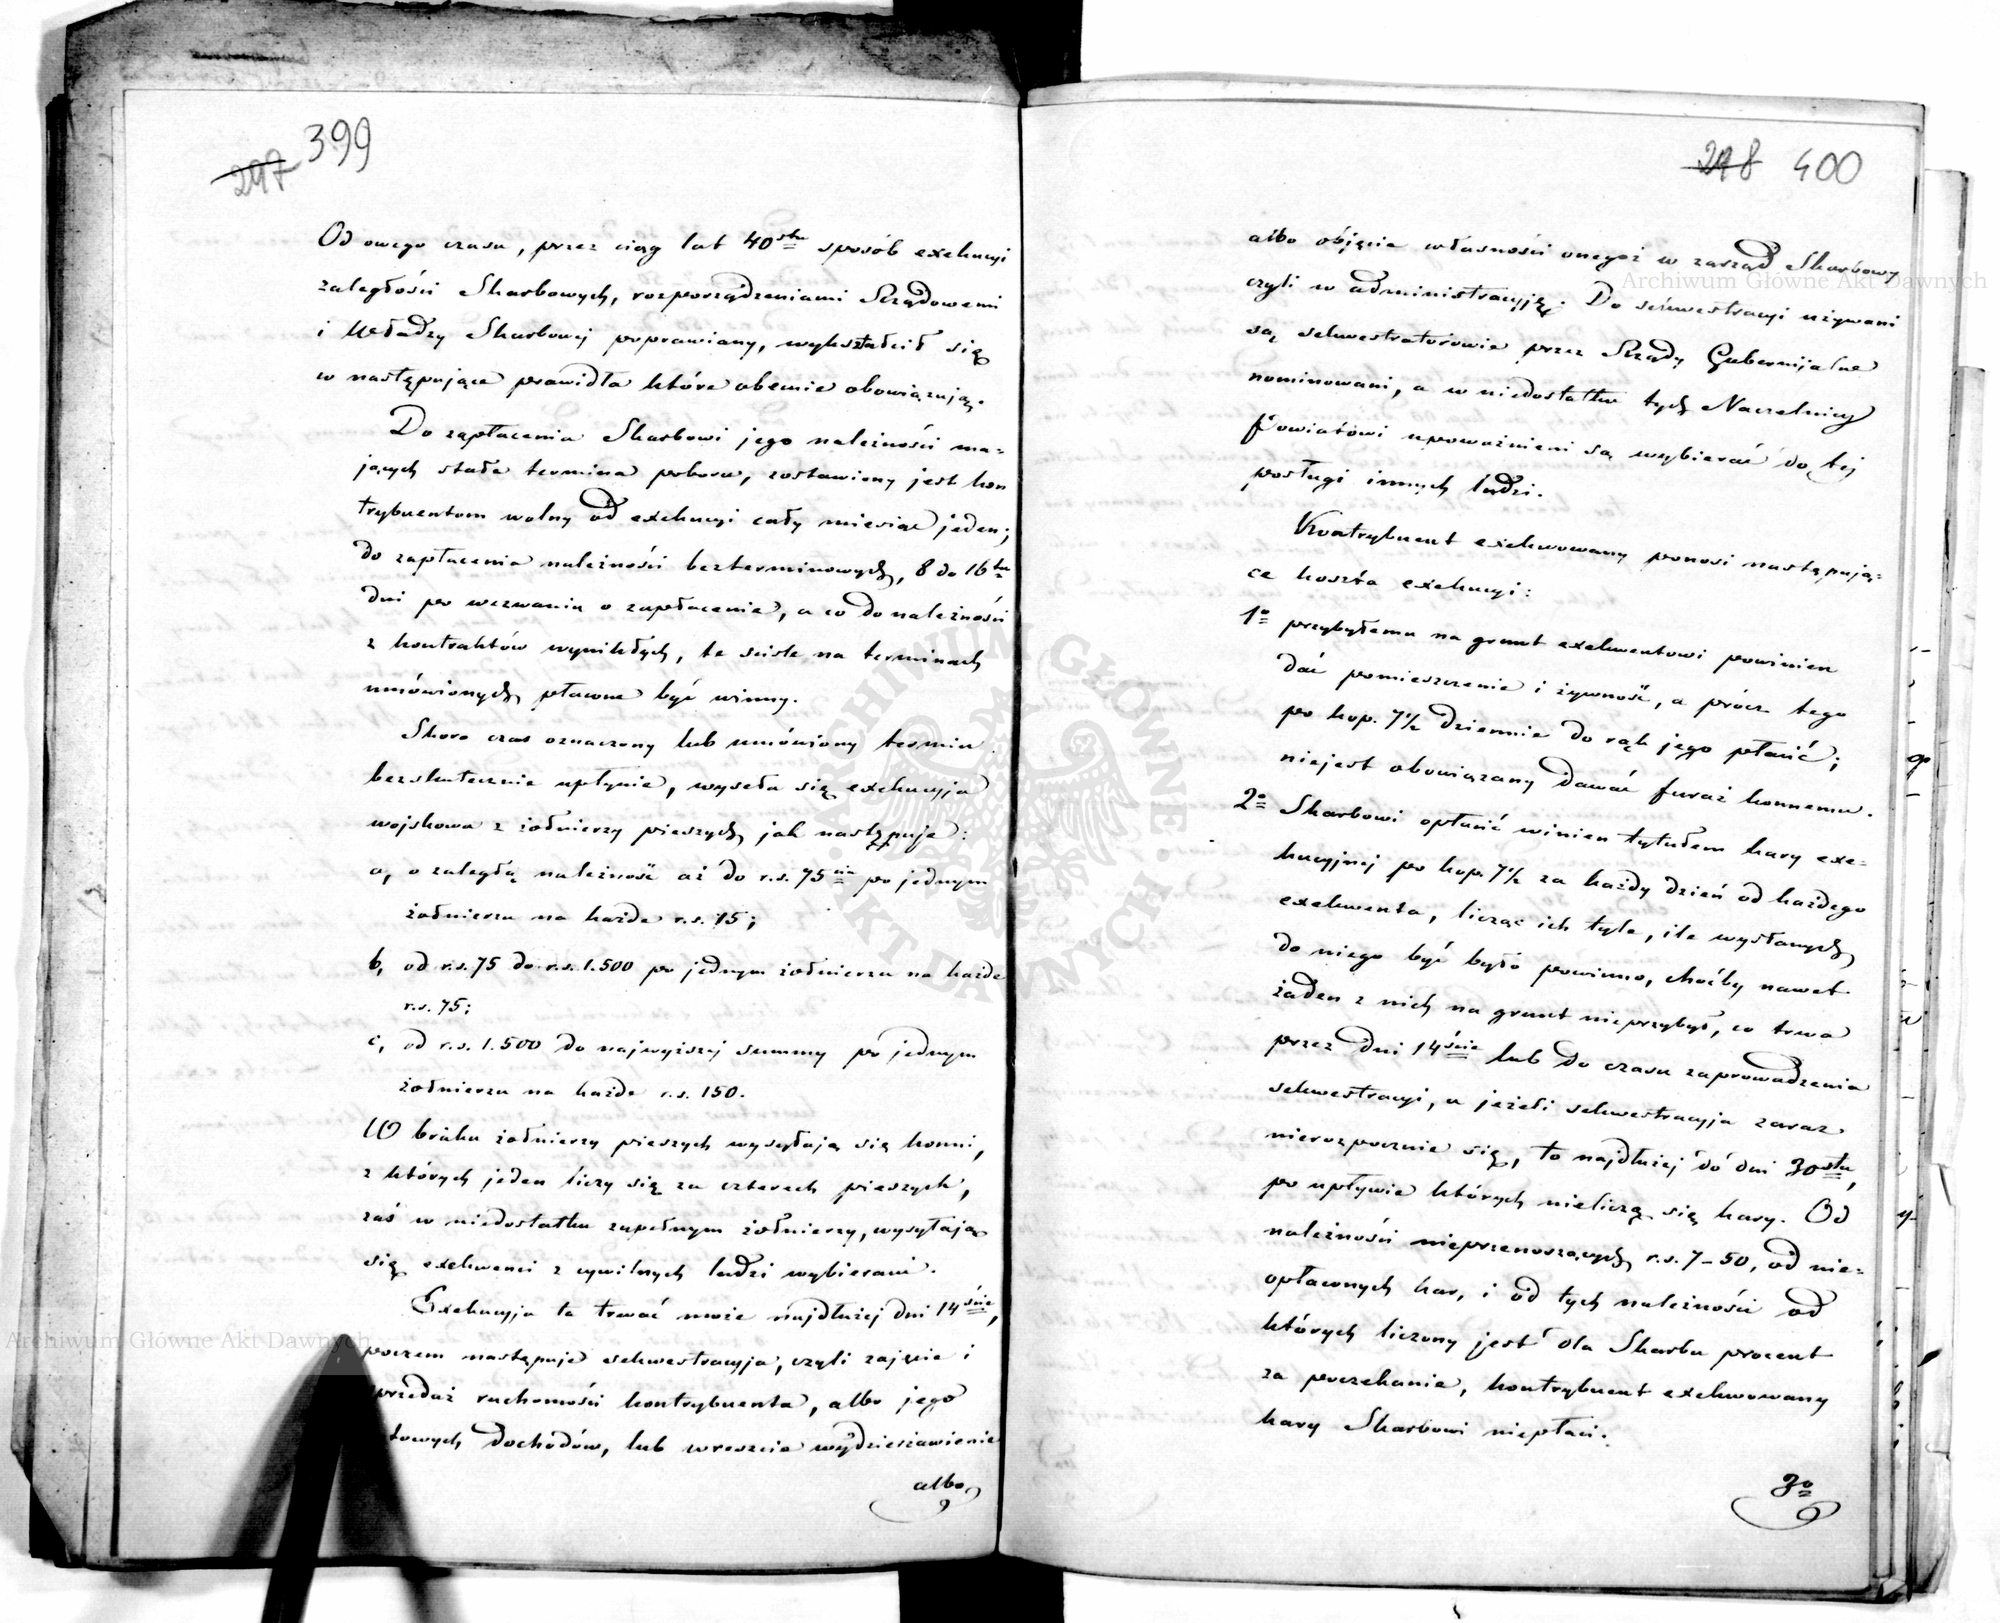 297 399
Od owego czasu, przez ciąg lat 40stu sposób exekucyi
zaległości Skarbowych, rozporządzeniami Rządowemi
i Władzy Skarbowej poprawiany, wykształcił się
w następujące prawidła które obecnie obowiązują.
Do zapłacenia Skarbowi jego należności ma=
jących stałe termina poboru, zostawiony jest kon
trybuentom wolny od exekucyi cały miesiąc jeden;
do zapłacenia należności bezterminowych, 8 do 16tu
dni po wezwaniu o zapłacenie, a co do należności
z kontraktów wynikłych, te ściśle na terminach
umówionych płacone być winny.
Skoro czas oznaczony lub umówiony termin
bezskutecznie upłynie, wyseła się exekucyja
wojskowa z żołnierzy pieszych jak następuje:
a, o zaległą należność aż do r.s. 75ciu po jednym
żołnierzu na każde r.s. 15;
b, od r.s. 75 do r.s. 1.500 po jednym żołnierzu na każde
r.s. 75;
c, od r.s. 1.500 do najwyższej summy po jednym
żołnierzu na każde r.s. 150.
W braku żołnierzy pieszych wysyłają się konni,
z których jeden liczy się za czterech pieszych,
zaś w niedostatku zupełnym żołnierzy, wysyłają
się exekwenci z cywilnych ludzi wybierani.
Exekucyja ta trwać może najdłużej dni 14ście,
poczem następuje sekwestracyja, czyli zajęcie i
przedaż ruchomości kontrybuenta, albo jego
towych dochodów, lub wreszcie wydzierżawienie
albo
298 400
albo objęcie własności onegoż w zarząd Skarbowy
czyli w administracyję. Do sekwestracyi używani
są sekwestratorowie przez Rządy Gubernijalne
nominowani, a w niedostatku tych Naczelnicy
Powiatowi upoważnieni są wybierać do tej
posługi innych ludzi.
Kontrybuent exekwowany ponosi następują=
ce koszta exekucyi:
1o przybyłemu na grunt exekwentowi powinien
dać pomieszczenie i żywność, a prócz tego
po kop. 7½ dziennie do rąk jego płacić;
niejest obowiązany dawać furaż konnemu.
2o Skarbowi opłacić winien tytułem kary exe=
kucyjnej po kop. 7½ za każdy dzień od każdego
exekwenta, licząc ich tyle, ile wysłanych
do niego być było powinno, choćby nawet
żaden z nich na grunt nieprzybył, co trwa
przez dni 14ście lub do czasu zaprowadzenia
sekwestracyi, a jeżeli sekwestracyja zaraz
nierozpocznie się, to najdłużej do dni 30stu,
po upływie których nieliczą się kary. Od
należności nieprzenoszących r.s. 7-50, od nie=
opłaconych kar, i od tych należności od
których liczony jest dla Skarbu procent
za poczekanie, kontrybuent exekwowany
kary Skarbowi niepłaci.
3o
Archiwum Główne Akt Dawnych
Archiwum Główne Akt Dawnych
ARCHIWUM GŁÓWNE AKT DAWNYCH